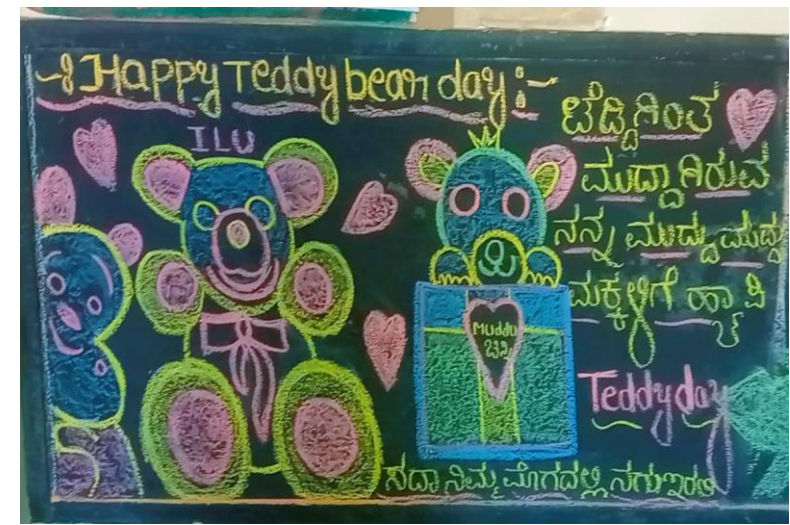 Happy Teddy bear day :-
ILU
ಟೆಡ್ಡಿಗಿಂತ
ಮುದ್ದಾಗಿರುವ
ನನ್ನ ಮುದ್ದು ಮುದ್ದು
ಮಕ್ಕಳಿಗೆ ಹ್ಯಾಪಿ
Teddy day
Muddu
ಸದಾ ನಿಮ್ಮ ಮೊಗದಲ್ಲಿ ನಗುಇರಲಿ